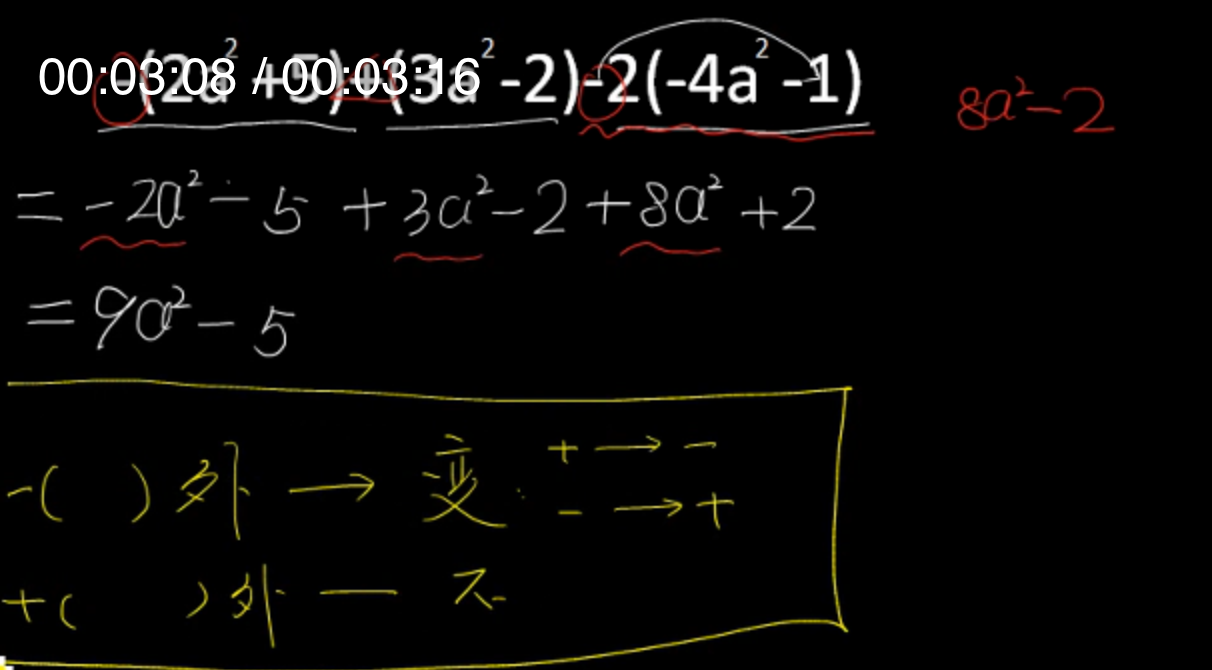 00:03:08 / 00:03:16
-(2a²+5)+(3a²-2)-2(-4a²-1)
8a²-2
= -2a²-5+3a²-2+8a²+2
= 9a²-5
-( )外 → 变 + → -
- → +
+( )外 — 不